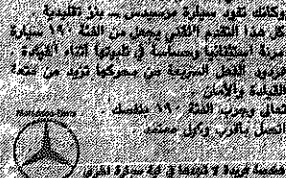 وكأنك تقود سيارة مرسيدس - بنز تقليدية
كل هذا التقدم التقني يجعل من الفئة ١٩٠ سيارة
مرنة استثنائياً وحساسة في تلبيتها أثناء القيادة
فردود الفعل السريعة من محركها تزيد من متعة
القيادة والأمان
تعال وجرب الفئة ١٩٠ بنفسك
اتصل بأقرب وكيل معتمد
Mercedes-Benz
في أية سيارة أخرى